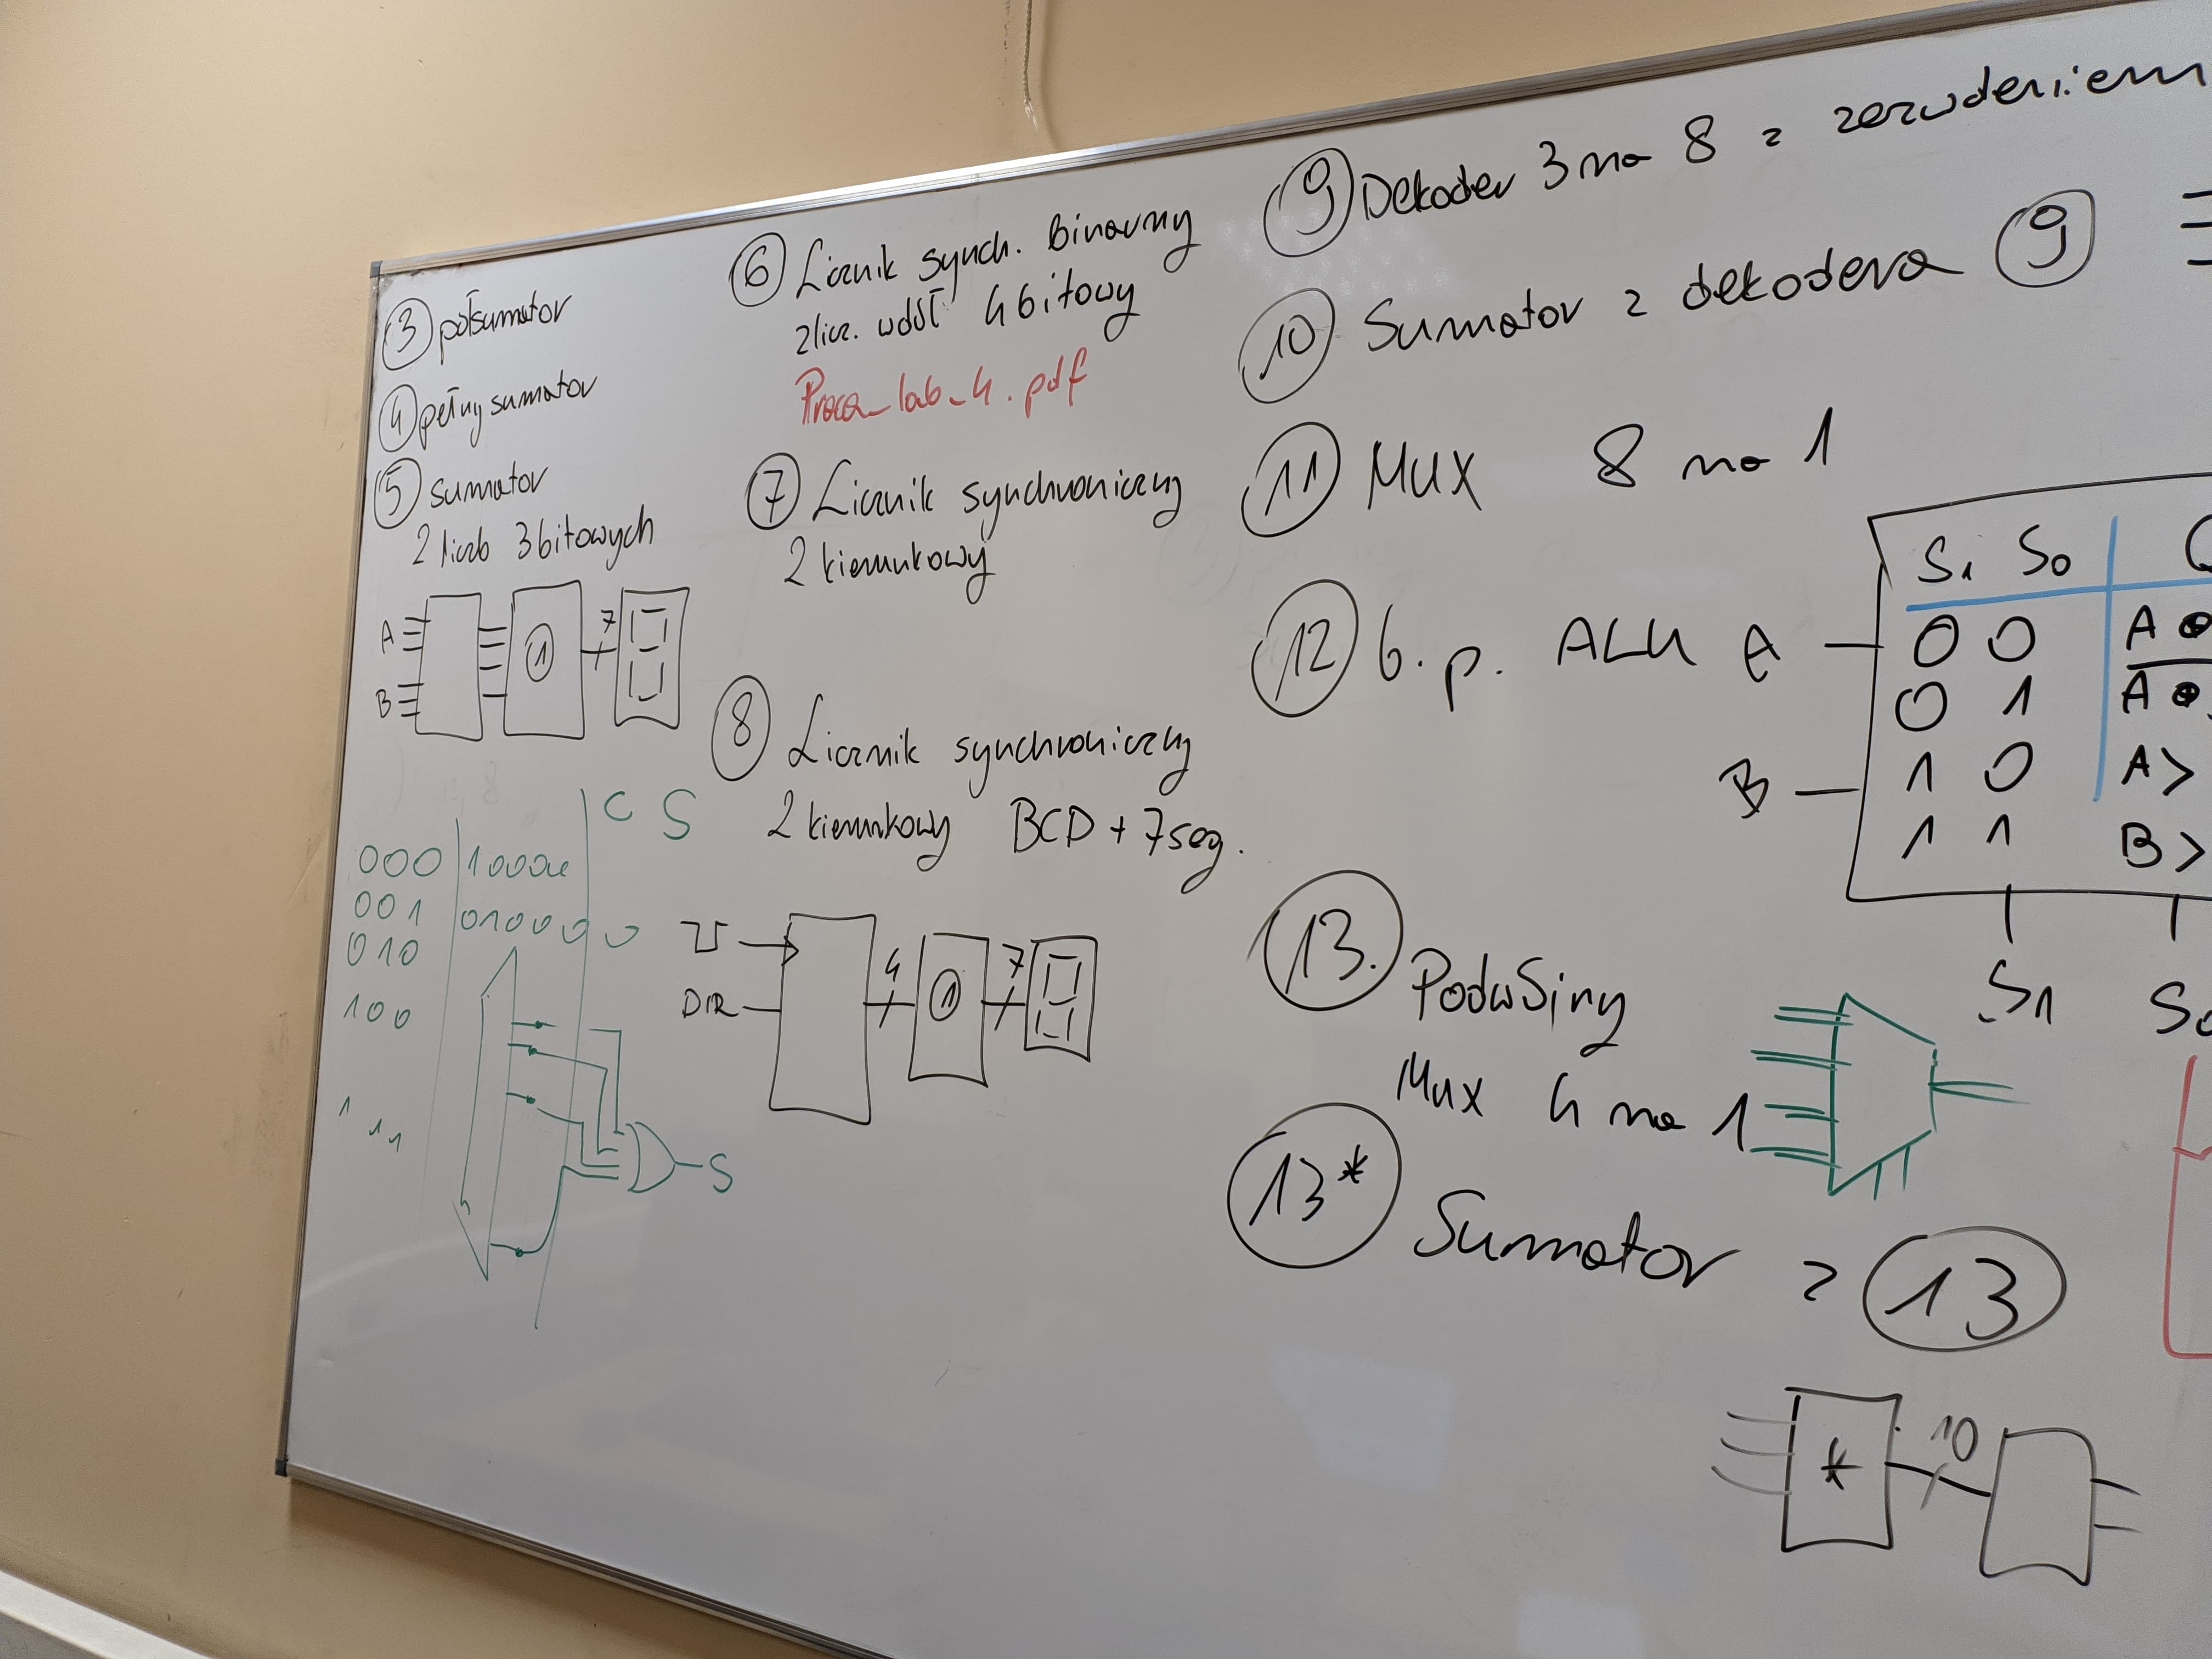 ③ półsumator
④ pełny sumator
⑤ sumator
2 liczb 3bitowych
A
B
1
7
C S
000 1000
001 010000
010
100
111
S
⑥ Licznik synch. binarny
zlicz. wdół 4bitowy
Praca_lab_4.pdf
⑦ Licznik synchroniczny
2 kierunkowy
⑧ Licznik synchroniczny
2 kierunkowy BCD + 7seg.
DIR
4
1
7
⑨ Dekoder 3 na 8 z zezwoleniem
⑩ Sumator z dekodera ⑨
⑪ Mux 8 na 1
⑫ b. p. ALU A
B
S1 S0
0 0 A
0 1 A
1 0 A>
1 1 B>
S1 S0
⑬. Podwójny
Mux 4 na 1
13* Sumator z ⑬
* 10